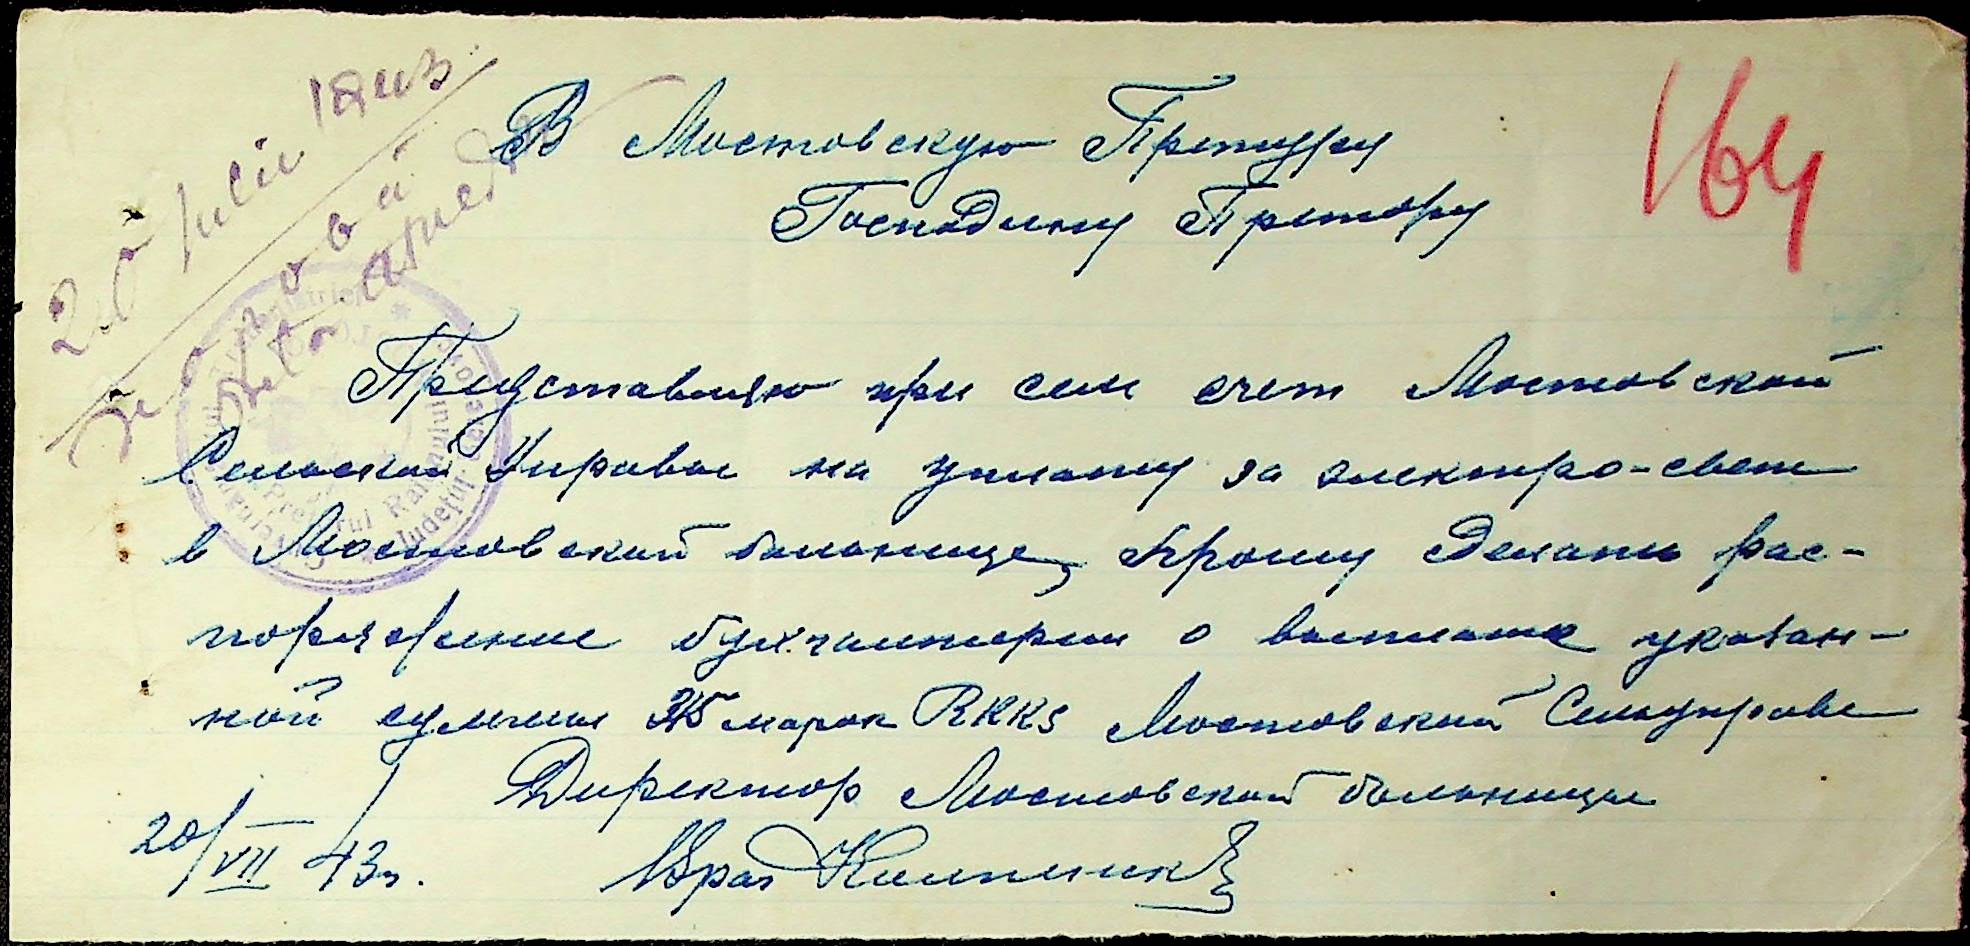 164
20 Iulie 1943
В Мостовскую Претуру
Господину Претору
Представляю при сем счет Мостовской
Сельской Управы на уплату за электро-свет
в Мостовской больнице, Прошу сделать рас-
поряжение бухгалтерии о выплате указан-
ной суммы 35 марок RKKS Мостовской Сельуправе
Директор Мостовской больницы
20/VII 43г.
Врач